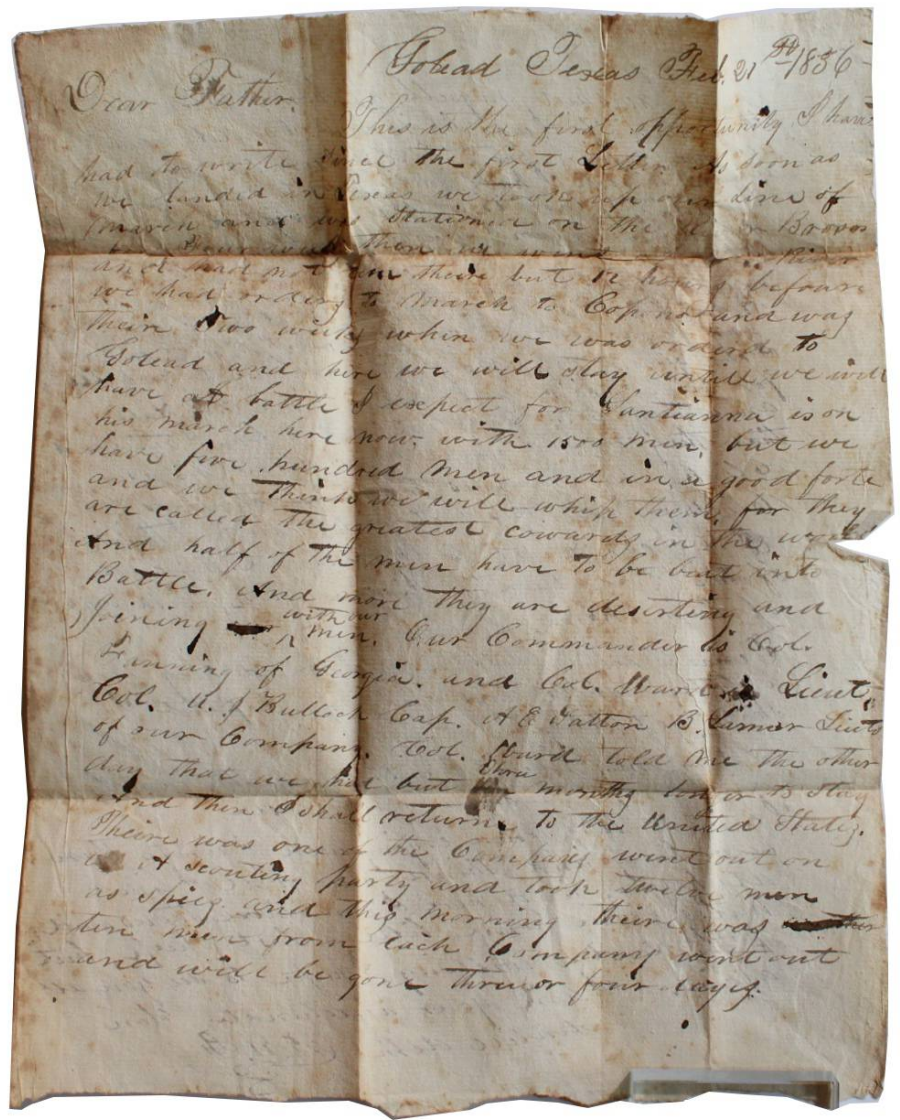 Golead Texas Feb. 21 st 1836
Dear Father.
This is the first opportunity I have
had to write since the first Letter. As soon as
we landed in Texas we took up our Line of
march and was stationed on the River Brasos
then we went
and had not been theire but 12 hours before
we had orders to march to Copano and was
their two weeks when we was orderd to
Golead and here we will stay untill we will
have a battle I expect for Santianna is on
his march here now. with 1500 men, but we
have five hundred men and in a good forte
and we think we will whip them, for they
are called the greatest cowards in the world
And half of the men have to be beat into
Battle. And more they are deserting and
Joining with our
men. Our Commander is Col.
Fanning of Georgia. and Col. Ward is Lieut,
Col. U. J Bulloch Cap. A E Patton B. Lamar Lieuts
of our Company. Col. Ward told me the other
day that we had but three months longer to stay
And then I shall return to the United States.
Theire was one of the Company went out on
A scouting party and took twelve men
as spies and this morning theire was
ten men from Each Company went out
and will be gone three or four days.